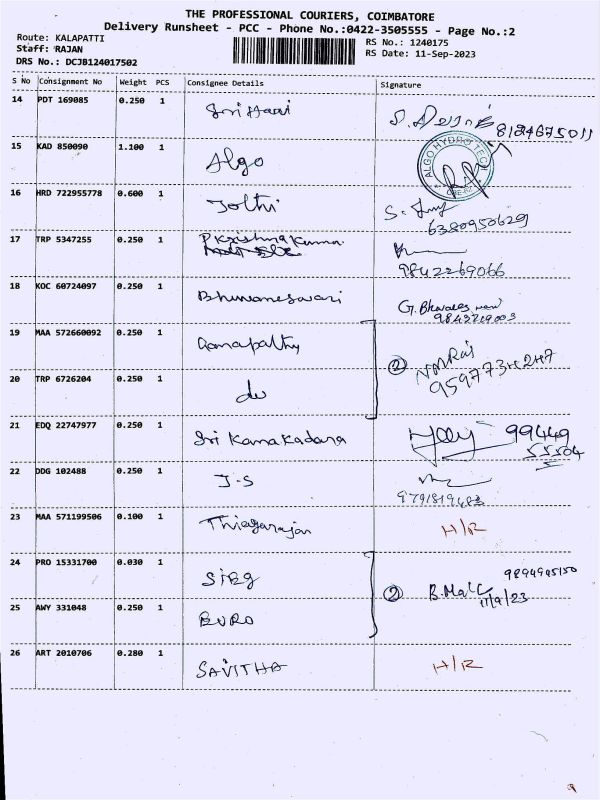 THE PROFESSIONAL COURIERS, COIMBATORE
Delivery Runsheet - PCC - Phone No.:0422-3505555 - Page No.:2
Route: KALAPATTI
RS No.: 1240175
Staff: RAJAN
RS Date: 11-Sep-2023
DRS No.: DCJB124017502
S No Consignment No Weight PCS Consignee Details Signature
14 PDT 169085 0.250 1 Sri Hari 8124675011
15 KAD 850090 1.100 1 Algo ALGO HYDRO TECH
16 HRD 722955778 0.600 1 Jothi S. 6380950629
17 TRP 5347255 0.250 1 P Krishna Kumar 9842269066
18 KOC 60724097 0.250 1 Bhuvaneswari G. 9843219003
19 MAA 572660092 0.250 1 Ganapathy
② 
20 TRP 6726204 0.250 1 do
21 EDQ 22747977 0.250 1 Sri Kanakadara 99449
55504
22 DDG 102488 0.250 1 J-S
23 MAA 571199506 0.100 1 Thiagarajan H/R
24 PRO 15331700 0.030 1 SIEG
② B.
11/9/23
25 AWY 331048 0.250 1 EURO
26 ART 2010706 0.280 1 SAVITHA H/R